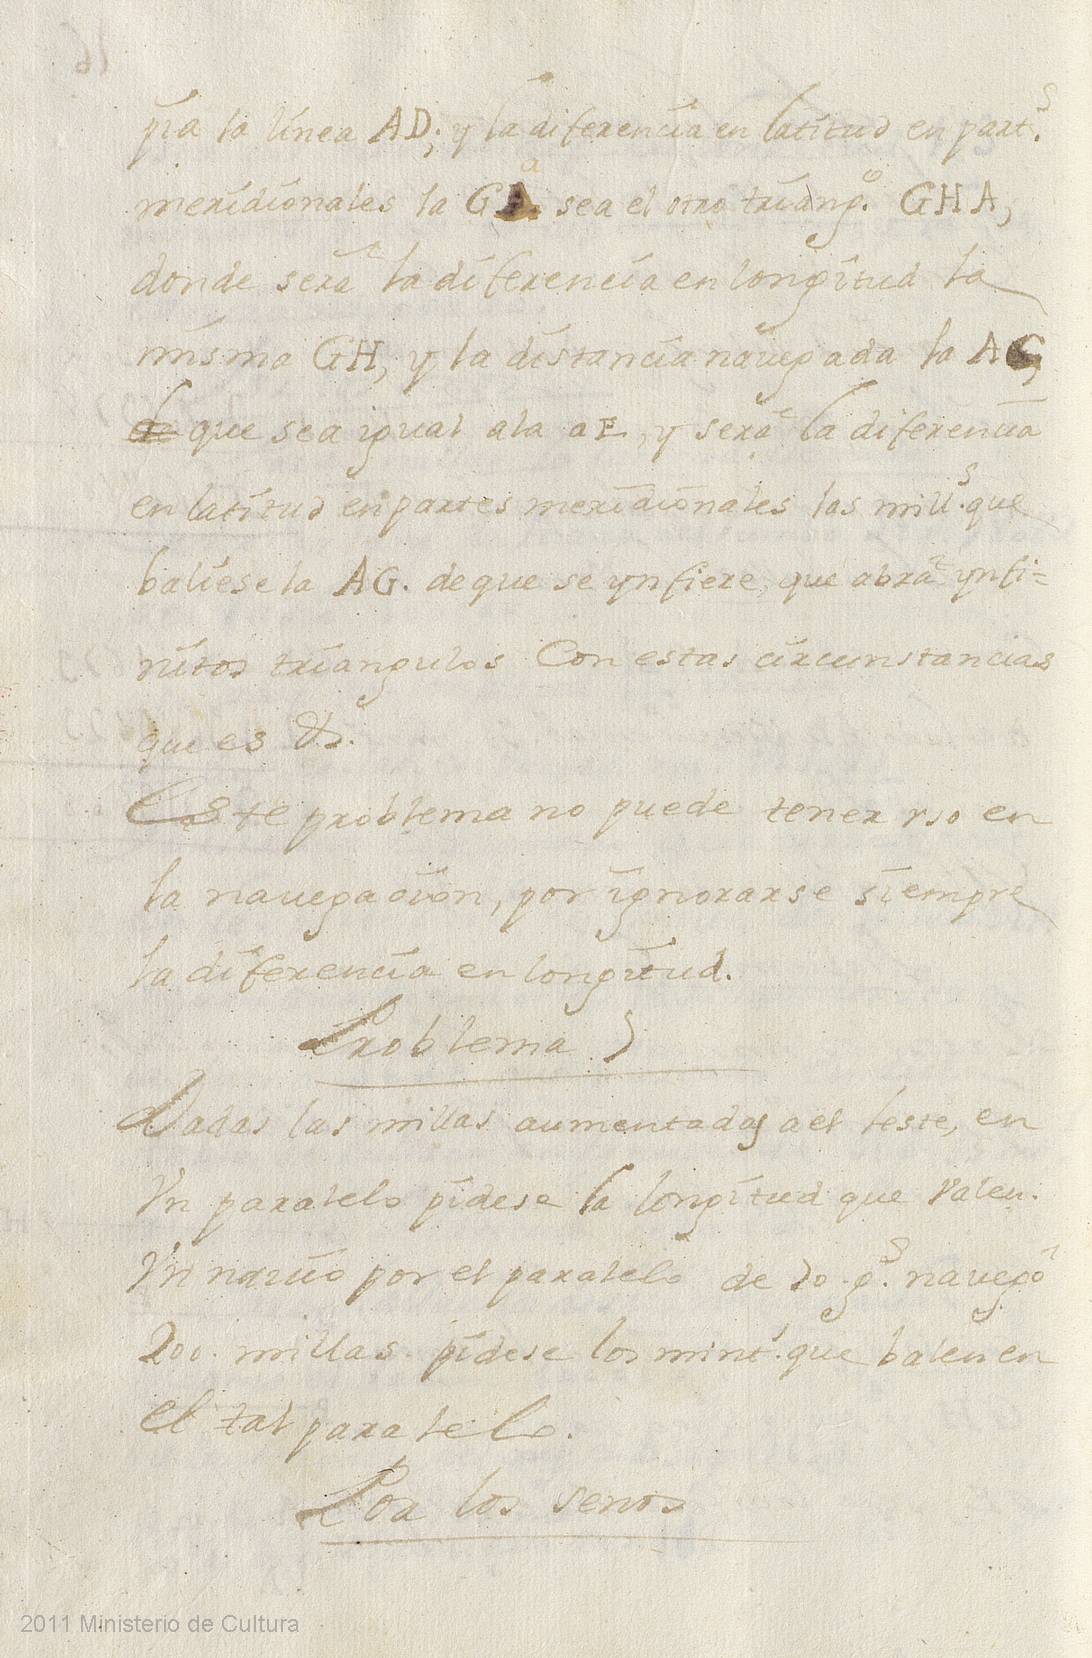 pia la línea AD; y la diferencia en latitud en part.s
meridionales la Ga sea el otro triang.o GHA,
donde sera la diferencia en longitud la
misma GH, y la distancia navegada la AG,
de que sea igual ala aE, y sera la diferencia
en latitud en partes meridionales las mill.s que
baliese la AG. de que se ynfiere, que abra ynfi=
nitos triangulos Con estas circunstancias
que es &.
Este problema no puede tener vso en
la navegacion, por ignorarse siempre
la diferencia en longitud.
Problema
Dadas las millas aumentadas a el leste, en
Vn paralelo pidese la longitud que Valen.
Vn navio por el paralelo de g.s navegó
200. millas. pidese los mint.s que balen en
el tal paralelo.
Por los senos
2011 Ministerio de Cultura